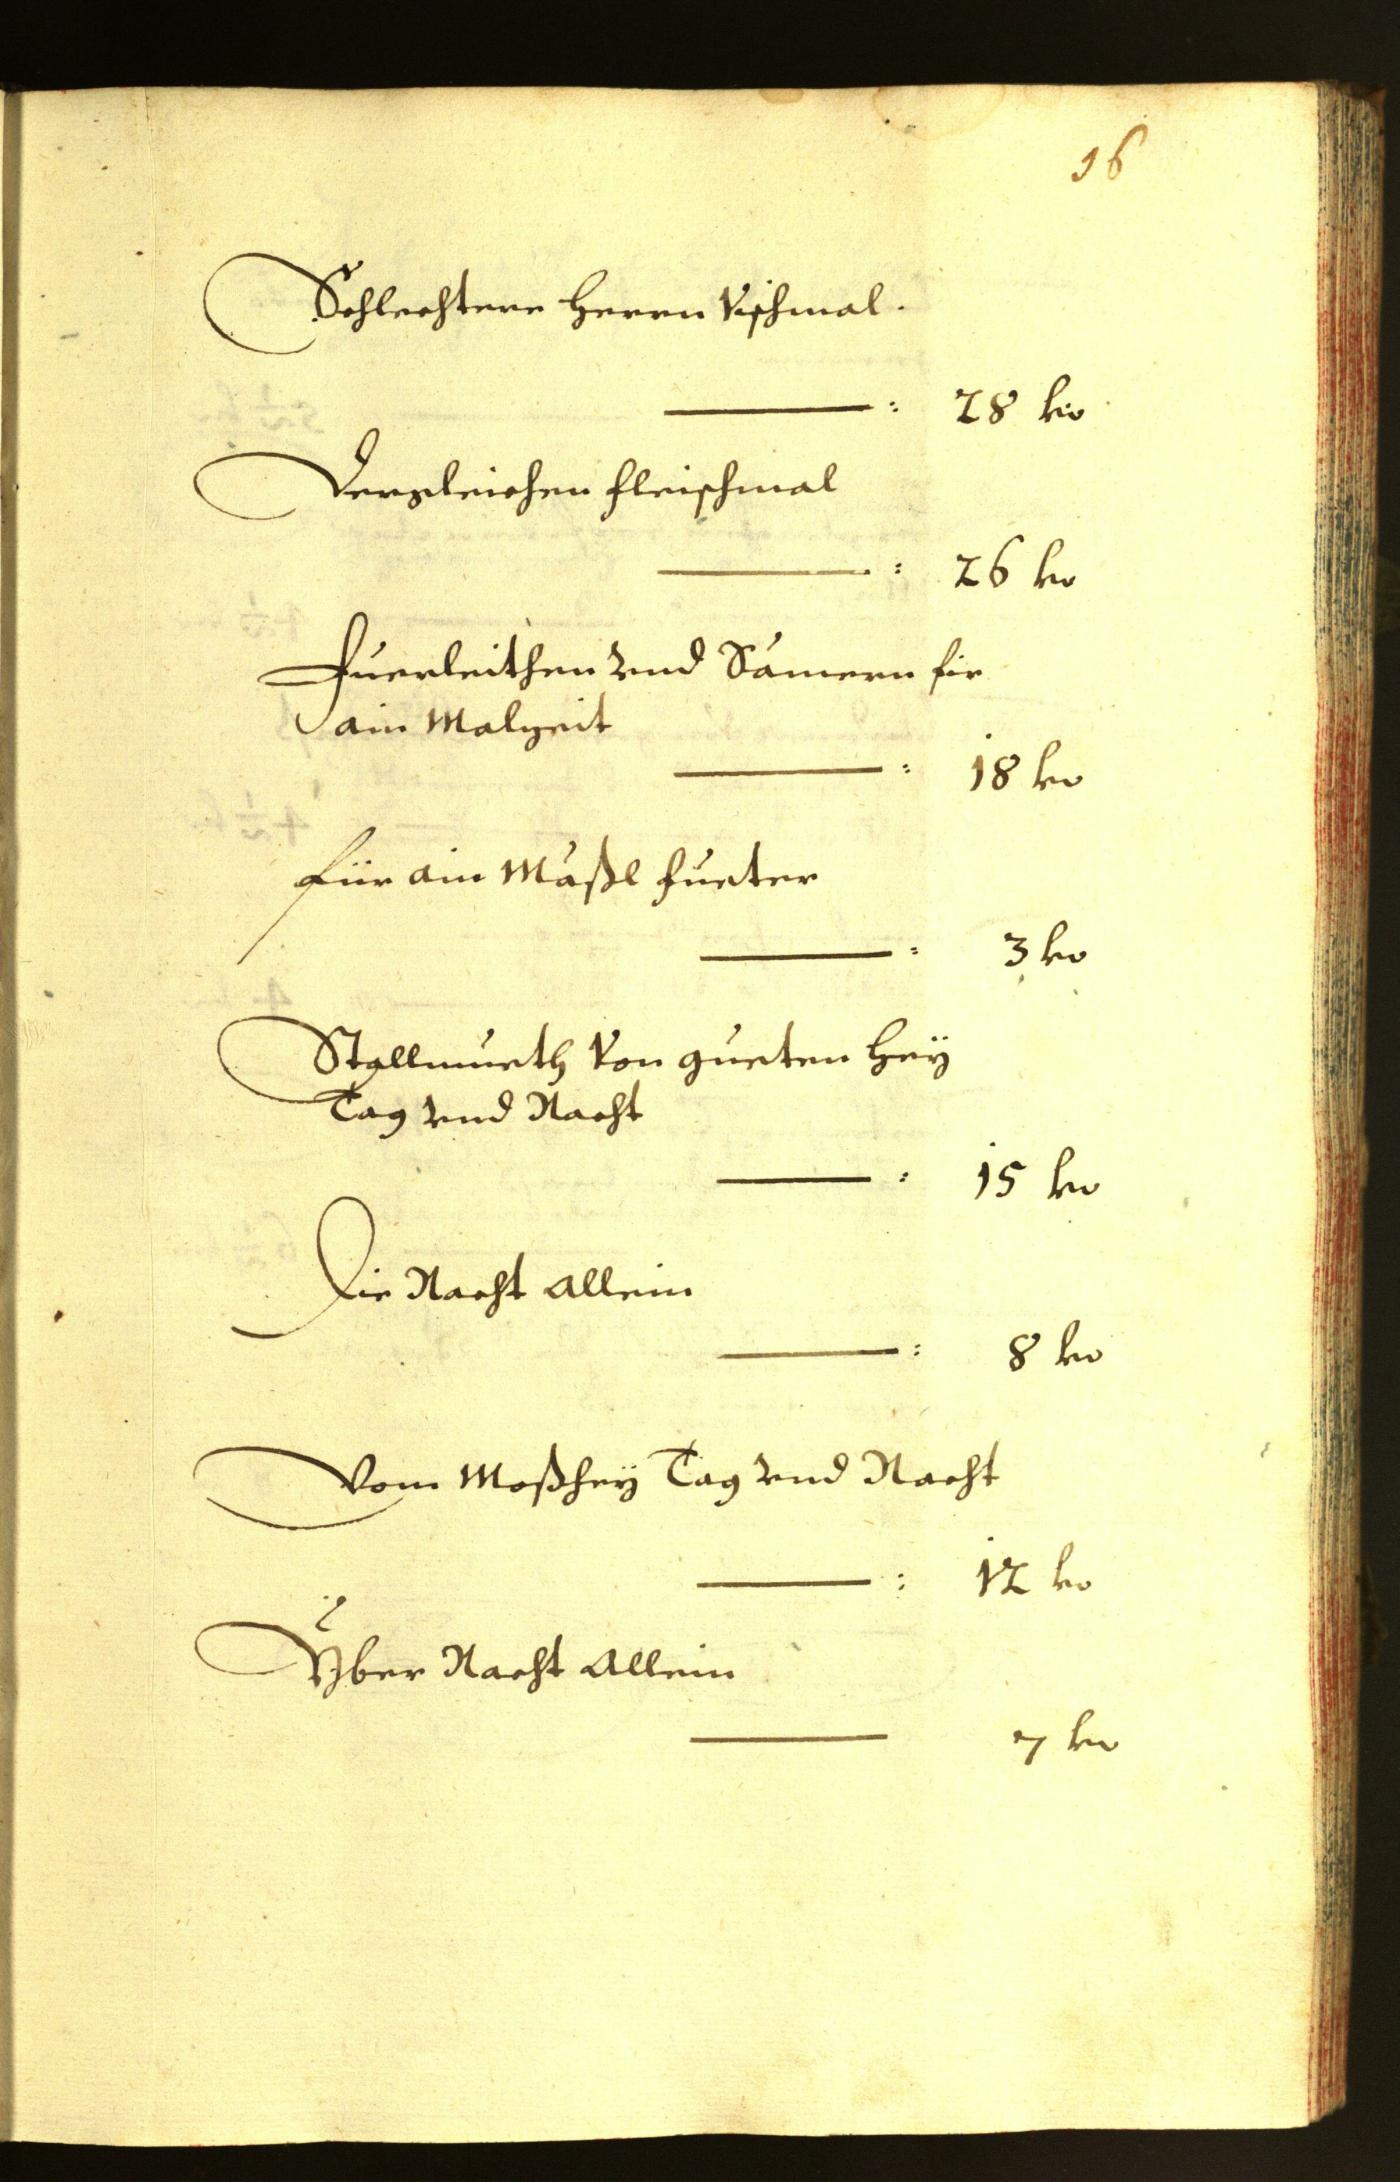 16
Schlechtere Herrn Vischmal.
: 28 kr
Dergleichen fleischmal
: 26 kr
Fuerleithen vnd Sämern fir
ain Malzeit
: 18 kr
für ain Mäßl fueter
: 3 kr
Stallmueth Von gueten Heÿ
Tag vnd Nacht
: 15 kr
Die Nacht allein
: 8 kr
Vom Moßheÿ Tag vnd Nacht
: 12 kr
Yber Nacht allein
7 kr